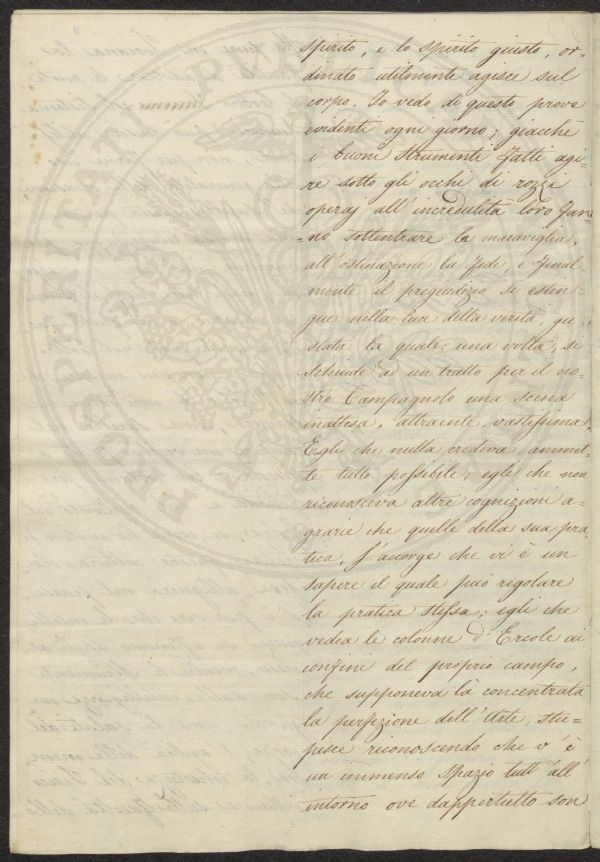 spirito, e lo spirito giusto, or-
dinato utilmente agisce sul
corpo. Io vedo di questo prove
evidenti ogni giorno; giacchè
i buoni strumenti fatti agi-
re sotto gli occhi di rozzi
operaj all'incredulità loro fan-
=no sottentrare la maraviglia,
all'ostinazione la fede, e final
mente il pregiudizio si estin-
gue nella luce della verità, gu-
stata la quale una volta, si
schiude ad un tratto per il no-
stro Campagnolo una scena
inattesa, attraente, vastissima.
Egli che nulla credeva, ammet-
te tutto possibile; egli che non
riconosceva altre cognizioni a-
grarie che quelle della sua pra
tica, s'accorge che vi è un
sapere il quale può regolare
la pratica stessa; egli che
vedea le colonne d'Ercole ai
confine del proprio campo,
che supponeva là concentrata
la perfezione dell'Arte, stu-
pisce riconoscendo che v'è
un immenso spazio tutt'all'
intorno ove dappertutto son
PROSPERITATI PUBLICAE